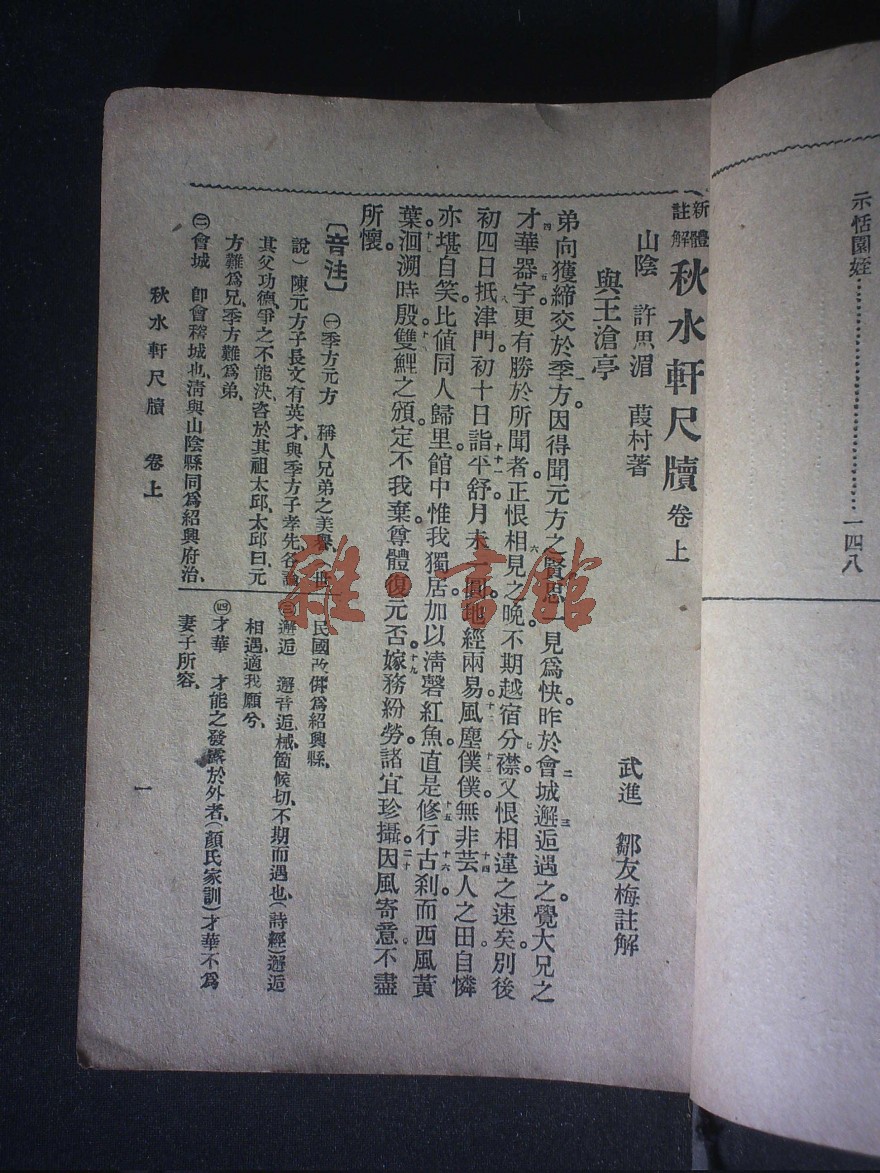 示恬園姪……一四八
新體註解 秋水軒尺牘 卷上
山陰 許思湄 葭村著
武進 鄒友梅註解
與王滄亭
弟向獲締交於季方。因得聞元方之賢。思一見爲快。昨於會城邂逅遇之。覺大兄之
才華器宇。更有勝於所聞者。正恨相見之晚。不期越宿分襟。又恨相違之速矣。別後
初四日抵津門。初十日詣平舒。月未一圓。地經兩易。風塵僕僕。無非芸人之田。自憐
亦堪自笑。比値同人歸里。館中惟我獨居。加以淸磬紅魚。直是修行古刹。而西風黃
葉。洄溯時殷。雙鯉之頒。定不我棄。尊體復元否。嫁務紛勞。諸宜珍攝。因風寄意。不盡
所懷。
〔音注〕㊀季方元方 稱人兄弟之美譽、(世
說)陳元方子長文有英才、與季方子孝先、各論
其父功德、爭之不能決、咨於其祖太邱、太邱曰、元
方難爲兄、季方難爲弟、
㊁會城 卽會稽城也、淸與山陰縣同爲紹興府治、
民國改倂爲紹興縣、
㊂邂逅 邂音逅、械、箇候切、不期而遇也、(詩經)邂逅
相遇、適我願兮、
㊃才華 才能之發露於外者、(顏氏家訓)才華不爲
妻子所容、
秋水軒尺牘 卷上
一
雜·書館